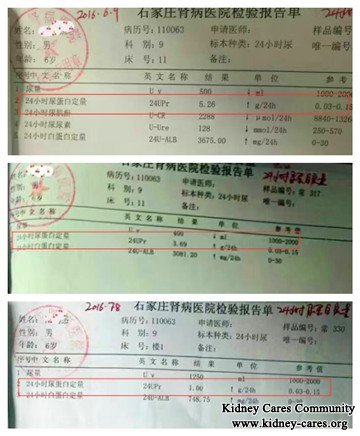 2016-6-9
石家庄肾病医院检验报告单
24小时尿
姓名:
病历号: 110063
申请医师:
性别: 男
科 别: 9
标本种类: 24小时尿
唯一编号:
年龄: 6岁
床 号: 11
样品编号:
序号 中 文 名 称
英 文 名 称
结 果
单 位
参 考 值
1 尿量
U v
500
↓ ml
1000-2000
2 24小时尿蛋白定量
24UPr
5.26
↑ g/24h
0.03-0.15
3 24小时尿肌酐
U-CR
2288
↓ μmol/24h
8840-1326
4 24小时尿尿素
U-Ure
128
↓ mmol/24h
250-570
5 24小时白蛋白定量
24U-ALB
3675.00
↑ mg/24h
0-30
石家庄肾病医院检验报告单
姓名:
病历号: 110063
申请医师:
性别: 男
科 别: 9
标本种类: 24小时尿
样品编号: 317
年龄: 6岁
床 号: 11
唯一编号:
序号 中 文 名 称
英 文 名 称
结 果
单 位
参 考 值
U v
ml
1000-2000
24小时尿蛋白定量
24UPr
3.69
↑ g/24h
0.03-0.15
24小时白蛋白定量
24U-ALB
3081.20
↑ mg/24h
0-30
石家庄肾病医院检验报告单
姓名:
病历号: 110063
申请医师:
性别: 男
科 别: 9
标本种类: 24小时尿
样品编号: 330
年龄: 6岁
床 号: 楼1
唯一编号:
序号 中 文 名 称
英 文 名 称
结 果
单 位
参 考 值
1 尿量
U v
1250
ml
1000-2000
2 24小时尿蛋白定量
24UPr
1.00
↑ g/24h
0.03-0.15
24小时白蛋白定量
24U-ALB
748.75
↑ mg/24h
0-30
Kidney Cares Community
www.kidney-cares.org